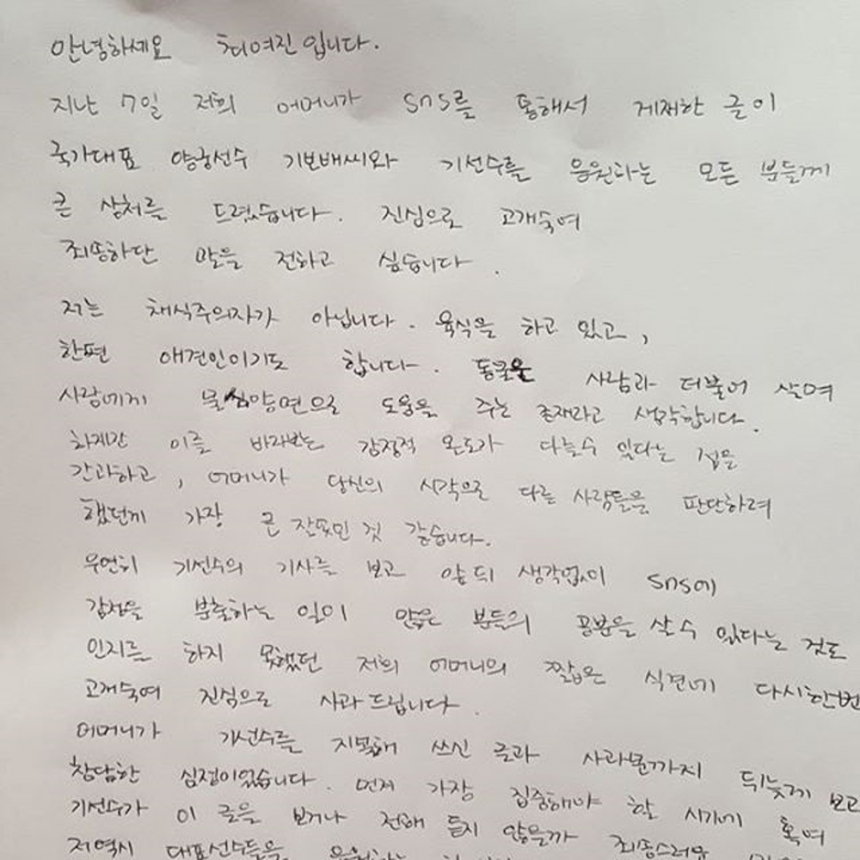 안녕하세요 최여진입니다.
지난 7일 저희 어머니가 sns를 통해서 게재한 글이
국가대표 양궁선수 기보배씨와 기선수를 응원하는 모든 분들께
큰 상처를 드렸습니다. 진심으로 고개숙여
죄송하단 말을 전하고 싶습니다.
저는 채식주의자가 아닙니다. 육식을 하고 있고,
한편 애견인이기도 합니다. 동물은 사람과 더불어 살며
사람에게 물심양면으로 도움을 주는 존재라고 생각합니다.
하지만 이를 바라보는 감정적 온도가 다를수 있다는 점을
간과하고, 어머니가 당신의 시각으로 다른 사람들을 판단하려
했던게 가장 큰 잘못인 것 같습니다.
우연히 기선수의 기사를 보고 앞뒤 생각없이 sns에
감정을 분출하는 일이 많은 분들의 공분을 살 수 있다는 것도
인지를 하지 못했던 저희 어머니의 짧은 식견에 다시한번
고개숙여 진심으로 사과드립니다.
어머니가 기선수를 지목해 쓰신 글과 사과문까지 뒤늦게 보고
참담한 심정이었습니다. 먼저 가장 집중해야 할 시기에 혹여
기선수가 이 글을 보거나 전해 듣지 않을까 죄송스러운
저역시 대표선수들을 응원하는